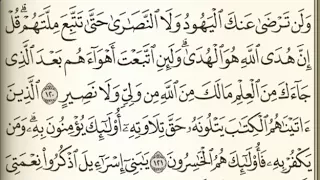 وَلَن تَرْضَىٰ عَنكَ ٱلْيَهُودُ وَلَا ٱلنَّصَٰرَىٰ حَتَّىٰ تَتَّبِعَ مِلَّتَهُمْ ۗ قُلْ
إِنَّ هُدَى ٱللَّهِ هُوَ ٱلْهُدَىٰ ۗ وَلَئِنِ ٱتَّبَعْتَ أَهْوَآءَهُم بَعْدَ ٱلَّذِى
جَآءَكَ مِنَ ٱلْعِلْمِ مَا لَكَ مِنَ ٱللَّهِ مِن وَلِىٍّ وَلَا نَصِيرٍ ١٢٠ ٱلَّذِينَ
ءَاتَيْنَٰهُمُ ٱلْكِتَٰبَ يَتْلُونَهُۥ حَقَّ تِلَاوَتِهِۦٓ أُو۟لَٰٓئِكَ يُؤْمِنُونَ بِهِۦ ۗ وَمَن
يَكْفُرْ بِهِۦ فَأُو۟لَٰٓئِكَ هُمُ ٱلْخَٰسِرُونَ ١٢١ يَٰبَنِىٓ إِسْرَٰٓءِيلَ ٱذْكُرُوا۟ نِعْمَتِىَ